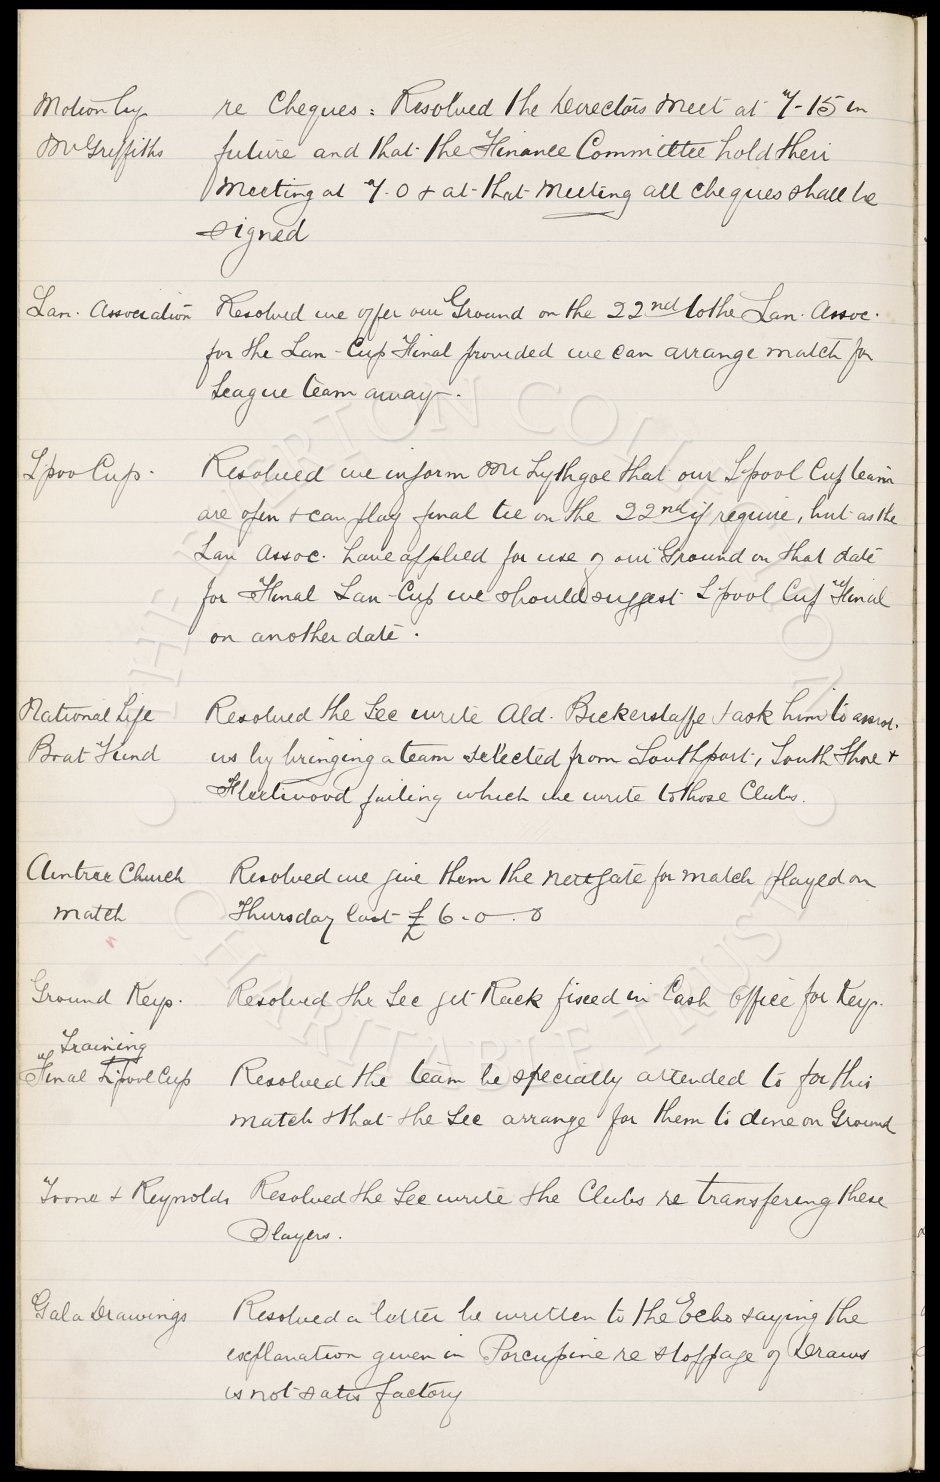 Motion by re Cheques : Resolved the Directors meet at 7-15 in
Mr Griffiths future and that the Finance Committee hold their
Meeting at 7.0 & at that meeting all cheques shall be
signed
Lan. Association Resolved we offer our Ground on the 22nd to the Lan. Assoc.
for the Lan - Cup Final provided we can arrange match for
League team away.
Lpool Cup. Resolved we inform Mr Lythgoe that our Lpool Cup team
are open & can play final tie on the 22nd if require, but as the
Lan Assoc. have applied for use of our Ground on that date
for Final Lan-Cup we should suggest Lpool Cup Final
on another date.
National Life Resolved the Sec write Ald. Bickerstaffe & ask him to assist
Boat Fund us by bringing a team selected from Southport, South Shore &
Fleetwood failing which we write to those Clubs.
Aintree Church Resolved we give them the nett gate for match played on
match Thursday last £6.0.0
Ground Keys. Resolved the Sec get Rack fixed in Cash Office for Keys.
Training
Final Lpool Cup Resolved the team be specially attended to for this
match & that the Sec arrange for them to dine on Ground
Toone & Reynolds Resolved the Sec write the Clubs re transfering these
Players.
Gala Drawings Resolved a letter be written to the Echo saying the
explanation given in Porcupine re stoppage of Draws
is not satisfactory
THE EVERTON COLLECTION
CHARITABLE TRUST